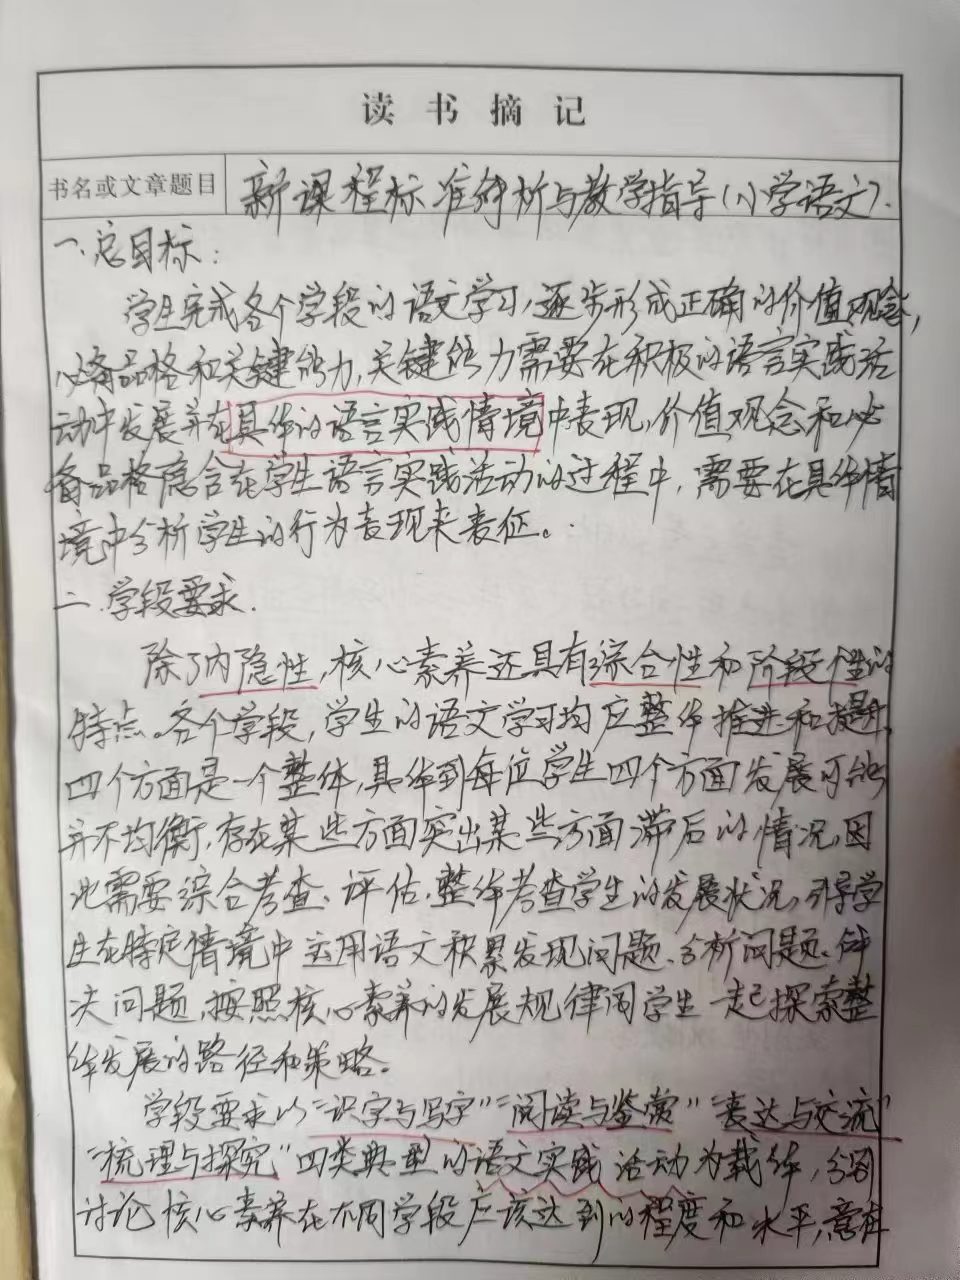 读书摘记
书名或文章题目 新课程标准解析与教学指导(小学语文).
一、总目标:
学生完成各个学段的语文学习,逐步形成正确的价值观念,
必备品格和关键能力,关键能力需要在积极的语言实践活
动中发展并在具体的语言实践情境中表现,价值观念和必
备品格隐含在学生语言实践活动的过程中,需要在具体情
境中分析学生的行为表现来表征。
二.学段要求.
除了内隐性,核心素养还具有综合性和阶段性的
特点。各个学段,学生的语文学习均应整体推进和提升,
四个方面是一个整体,具体到每位学生四个方面发展可能
并不均衡,存在某些方面突出某些方面滞后的情况,因
此需要综合考查、评估,整体考查学生的发展状况,引导学
生在特定情境中运用语文积累发现问题、分析问题、解
决问题,按照核心素养的发展规律同学生一起探索整
体发展的路径和策略。
学段要求以"识字与写字""阅读与鉴赏""表达与交流"
"梳理与探究"四类典型的语文实践活动为载体,分别
讨论核心素养在不同学段应该达到的程度和水平,意在